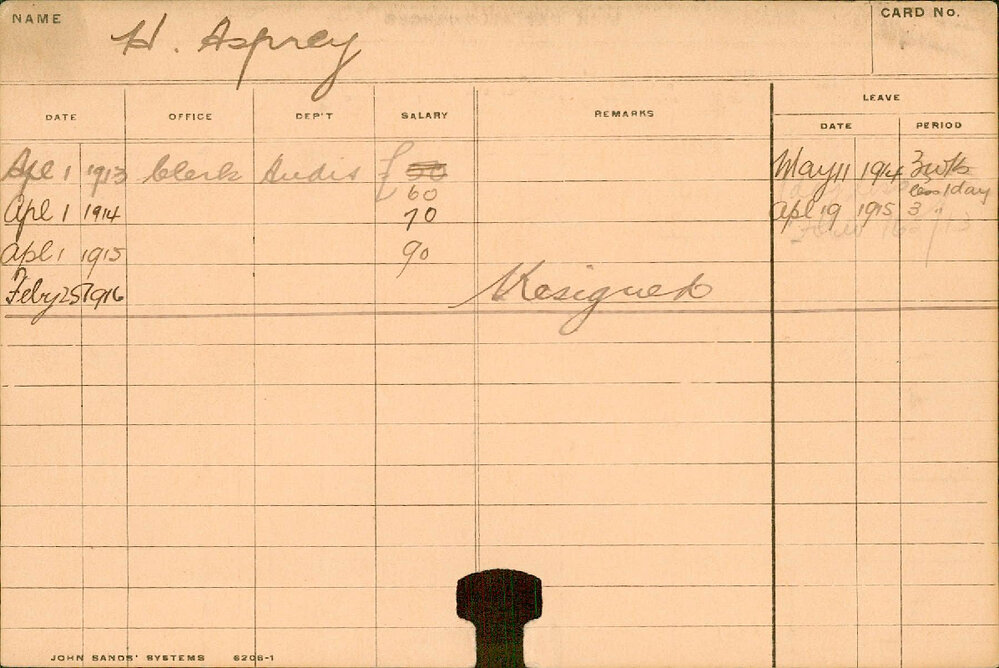 NAME
H. Asprey
CARD No.
LEAVE
DATE OFFICE DEP'T SALARY REMARKS DATE PERIOD
Apl 1 1913 Clerk Audit £ 50 May 11 1914 3 wks
60 less 1 day
Apl 1 1914 70 Apl 19 1915 3 "
Apl 1 1915 90
Feby 25 1916 Resigned
JOHN SANDS' SYSTEMS 6206-1